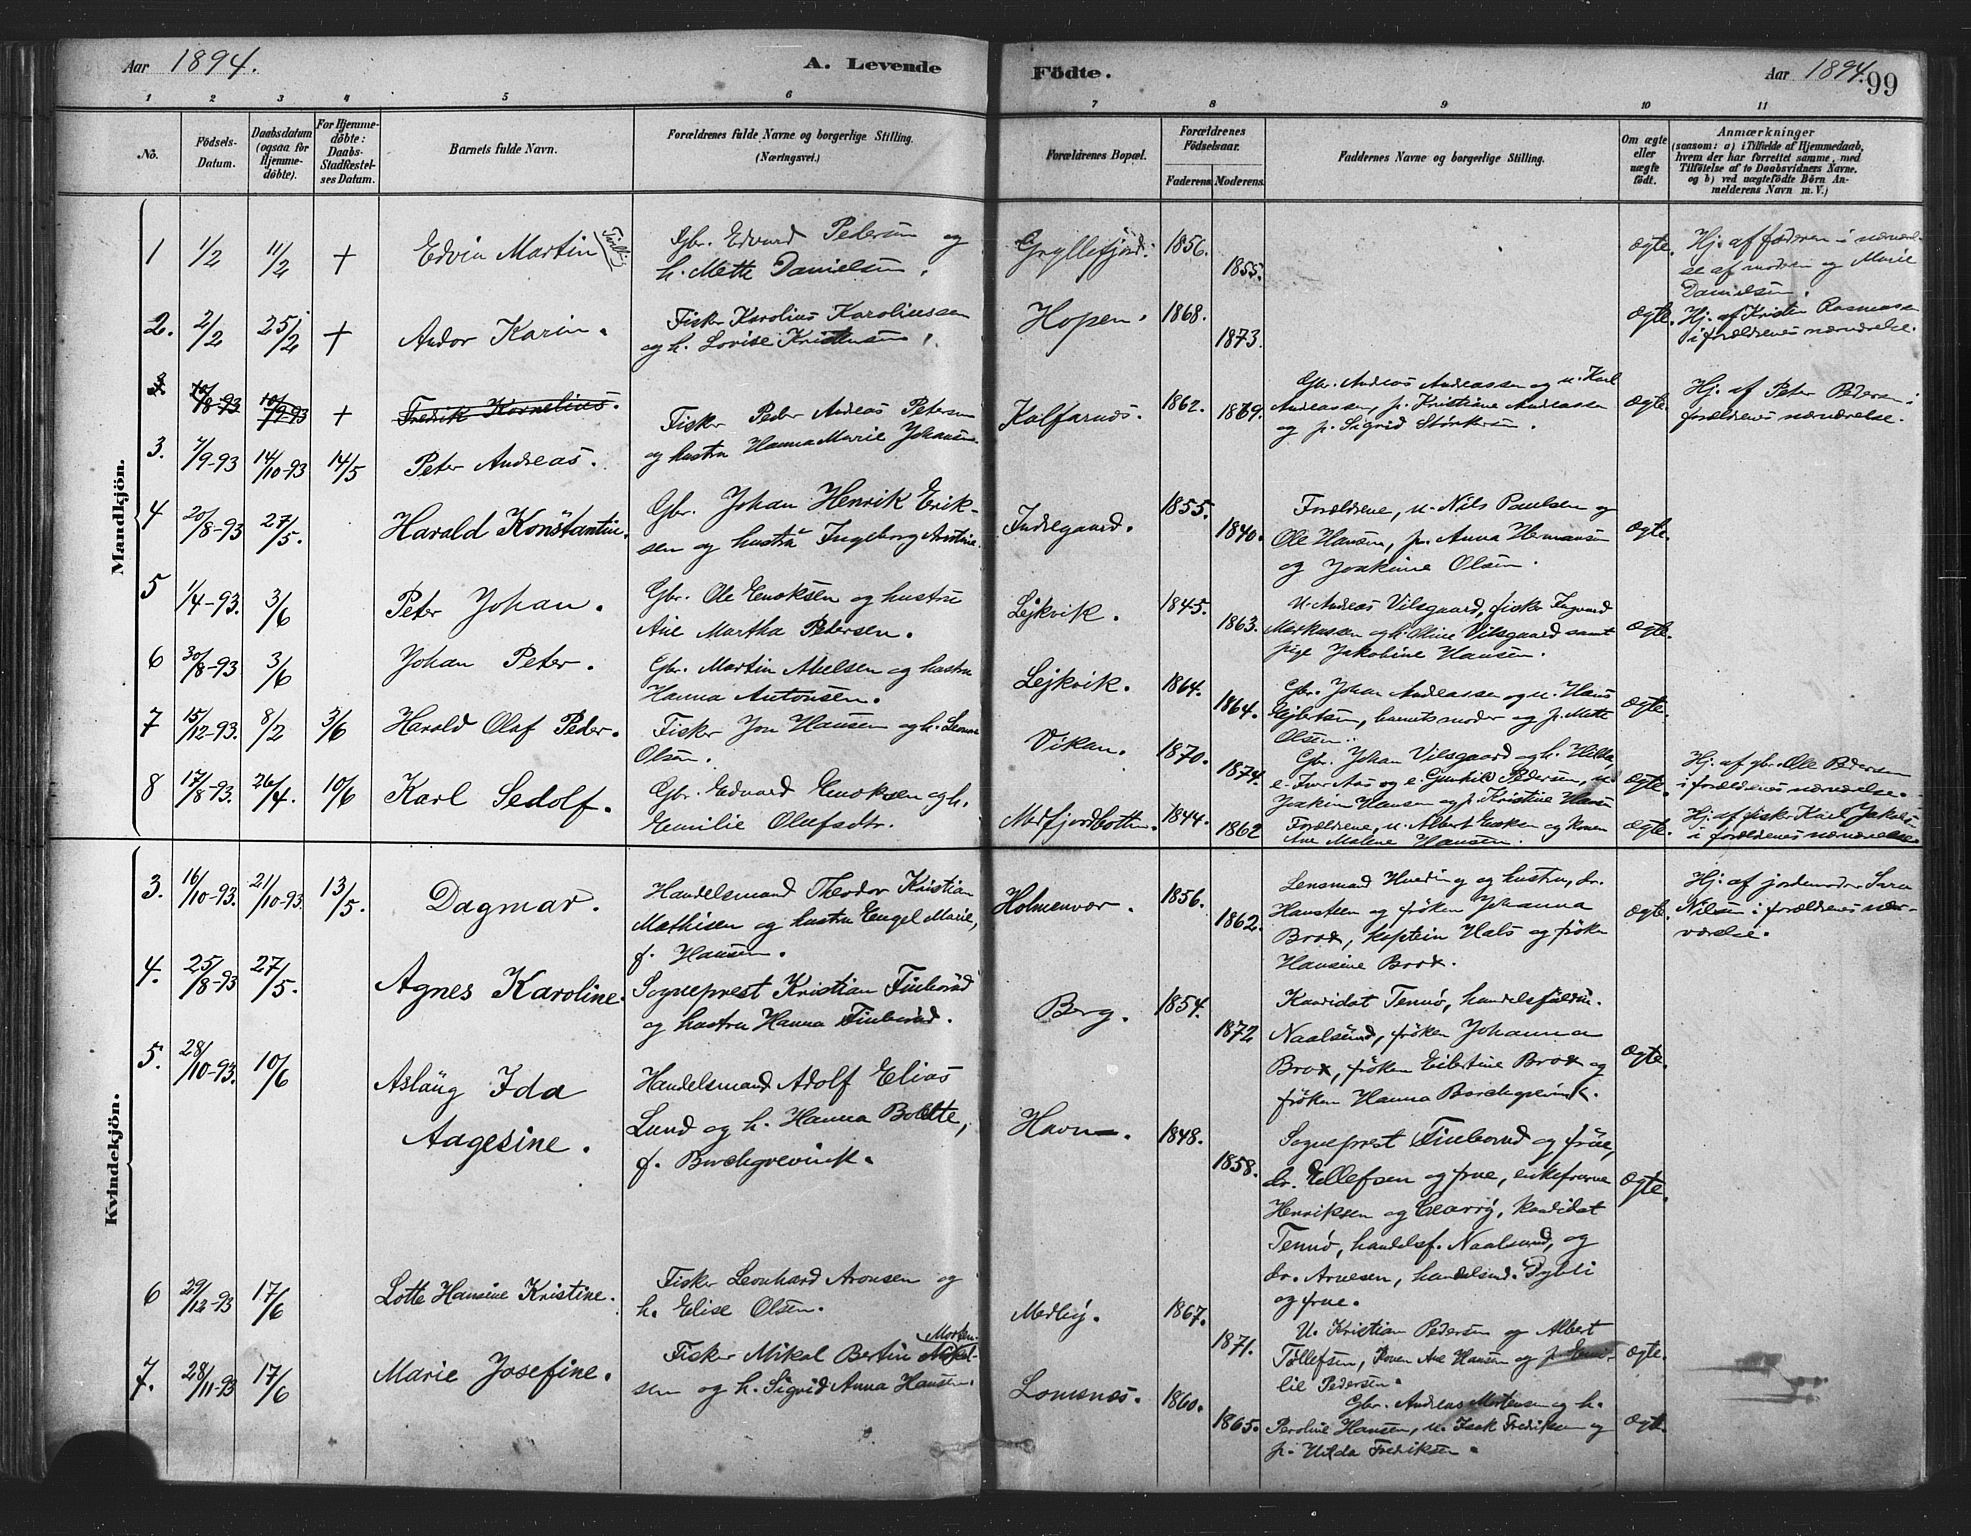 Aar 1894.
A. Levende
Födte.
Aar 1894.
99
1 2 3 4 5 6 7 8 9 10 11
No.
Födsels-Datum.
Daabsdatum (ogsaa for Hjemme-döbte).
For Hjemme-döbte: Daabs-Stadfæstel-ses Datum.
Barnets fulde Navn.
Forældrenes fulde Navne og borgerlige Stilling. (Næringsvei.)
Forældrenes Bopæl.
Forældrenes Födselsaar.
Faderens. Moderens.
Faddernes Navne og borgerlige Stilling.
Om ægte eller uægte födt.
Anmærkninger
(saasom: a) i Tilfælde af Hjemmedaab,
hvem der har forrettet samme, med
Tilföielse af to Daabsvidners Navne.
og b) ved uægtefödte Börn An-
melderens Navn m. V.)
Mandkjön.
1 1/2 11/2 + Edvin Martin
Gbr. Edvard Pedersen og
h. Mette Danielsen.
Gryllefjord. 1856. 1855.
ægte.
Hj. af faderen i nærværel-
se af moderen og Marie
Danielsen.
2. 2/2 25/2 + Andor Karin.
Fisker Karolius Karoliussen
og h. Lovise Kristensen.
Hopen. 1868. 1873.
ægte.
Hj. af Kristen Rasmussen
i forældrenes nærværelse.
10/8-93 10/9-93 + Fredrik Kornelius.
3. 7/9-93 14/10-93 14/5 Peter Andreas.
Fisker Peder Andreas Petersen
og hustru Hanna Marie Johansen
Kalfarnes. 1862. 1869.
Gbr. Andreas Andreassen og u. Karl
Andreassen, p. Kristiane Andreassen
og p. Sigrid
ægte.
Hj. af Peter Pedersen i
forældrenes nærværelse.
4 20/8-93 27/5. Harald Konstantin.
Gbr. Johan Henrik Erik-
sen og hustru Ingeborg
Indregaard. 1855. 1840.
Forældrene, u. Nils Paulsen og
Ole Hansen, p. Anna Hermansen
og Joakime Olsen.
ægte.
5 1/4-93. 3/6 Peter Johan.
Gbr. Ole Enoksen og hustru
Ane Martha Petersen.
Lejkvik. 1845. 1863.
U. Andreas Vilsgaard, fisker Ingvard
Markussen og h. Oline Vilsgaard samt
pige Jakobine Hansen.
ægte.
6 30/8-93 3/6 Johan Peter.
Gbr. Martin og hustru
Hanna Antonsen.
Lejkvik. 1864. 1864.
Gbr. Johan Andreassen og u. Hans
Eilertsen, barnets moder og p. Mette
Olsen.
ægte.
7 15/12-93. 8/2 3/6 Harald Olaf Peder.
Fisker Jon Hansen og h. Leonora
Olsen.
Vikan. 1870. 1874.
Gbr. Johan Vilsgaard og h. Hilda
e. Ivar Aas og e. Gunhild Pedersen, u.
Joakim Hansen og p. Kristine Hansen
ægte.
Hj. af gbr. Ole Pedersen
i forældrenes nærværelse.
8 17/8-93. 26/4. 10/6 Karl Sedolf.
Gbr. Edvard Enoksen og h.
Emilie Olufsdtr.
Medfjordbotten. 1844. 1862
Forældrene, u. Albert og konen
Ane Malene Hansen.
ægte.
Hj. af fisker Karl Jakobsen
i forældrenes nærværelse.
Kvindekjön.
3. 16/10-93. 21/10-93 13/5. Dagmar.
Handelsmand Theodor Kristian
Mathisen og hustru Engel Marie,
f. Hansen.
Holmenvær. 1856. 1862.
Lensmand Hveding og hustru, dr.
Hansteen og frøken Johanna
Brox, kaptein Hals og frøken
Hansine Brox.
ægte.
Hj. af jordemoder Sara
Nilsen i forældrenes nær-
værelse.
4. 25/8-93 27/5. Agnes Karoline.
Sogneprest Kristian Finborud
og hustru Hanna Finborud.
Berg. 1854. 1872
Kandidat Tennø, handelsfuldm.
Naalsund, frøken Johanna
Brox, frøken Eilertine Brox og
frøken Hanna Borchgrevink.
ægte.
5. 28/10-93. 10/6 Aslaug Ida
Aagesine.
Handelsmand Adolf Elias
Lund og h. Hanna Bolette,
f. Borchgrevink.
Havn. 1848. 1858.
Sogneprest Finborud og frue,
dr. Ellefsen og frue, enkefruerne
Henriksen og kandidat
Tennø, handelsf. Naalsund, og
dr. Arnesen, handelsmd. Dybli
og frue.
ægte.
6 29/12-93 17/6 Lotte Hansine Kristine.
Fisker Leonhard Aronsen og
h. Elise Olsen.
Medby. 1867. 1871.
U. Kristian Pedersen og Albert
Tollefsen, konen Ane Hansen og p. Emi-
lie Pedersen.
ægte.
7. 28/11-93 17/6 Marie Josefine.
Morten-
Fisker Mikal Bertin Mikal-
sen og h. Sigrid Anna Hansen.
Lomsnes. 1860. 1865.
Gbr. Andreas Mortensen og h.
Peroline Hansen, u. Isak Fredriksen og
p. Hilda Fredriksen.
ægte.